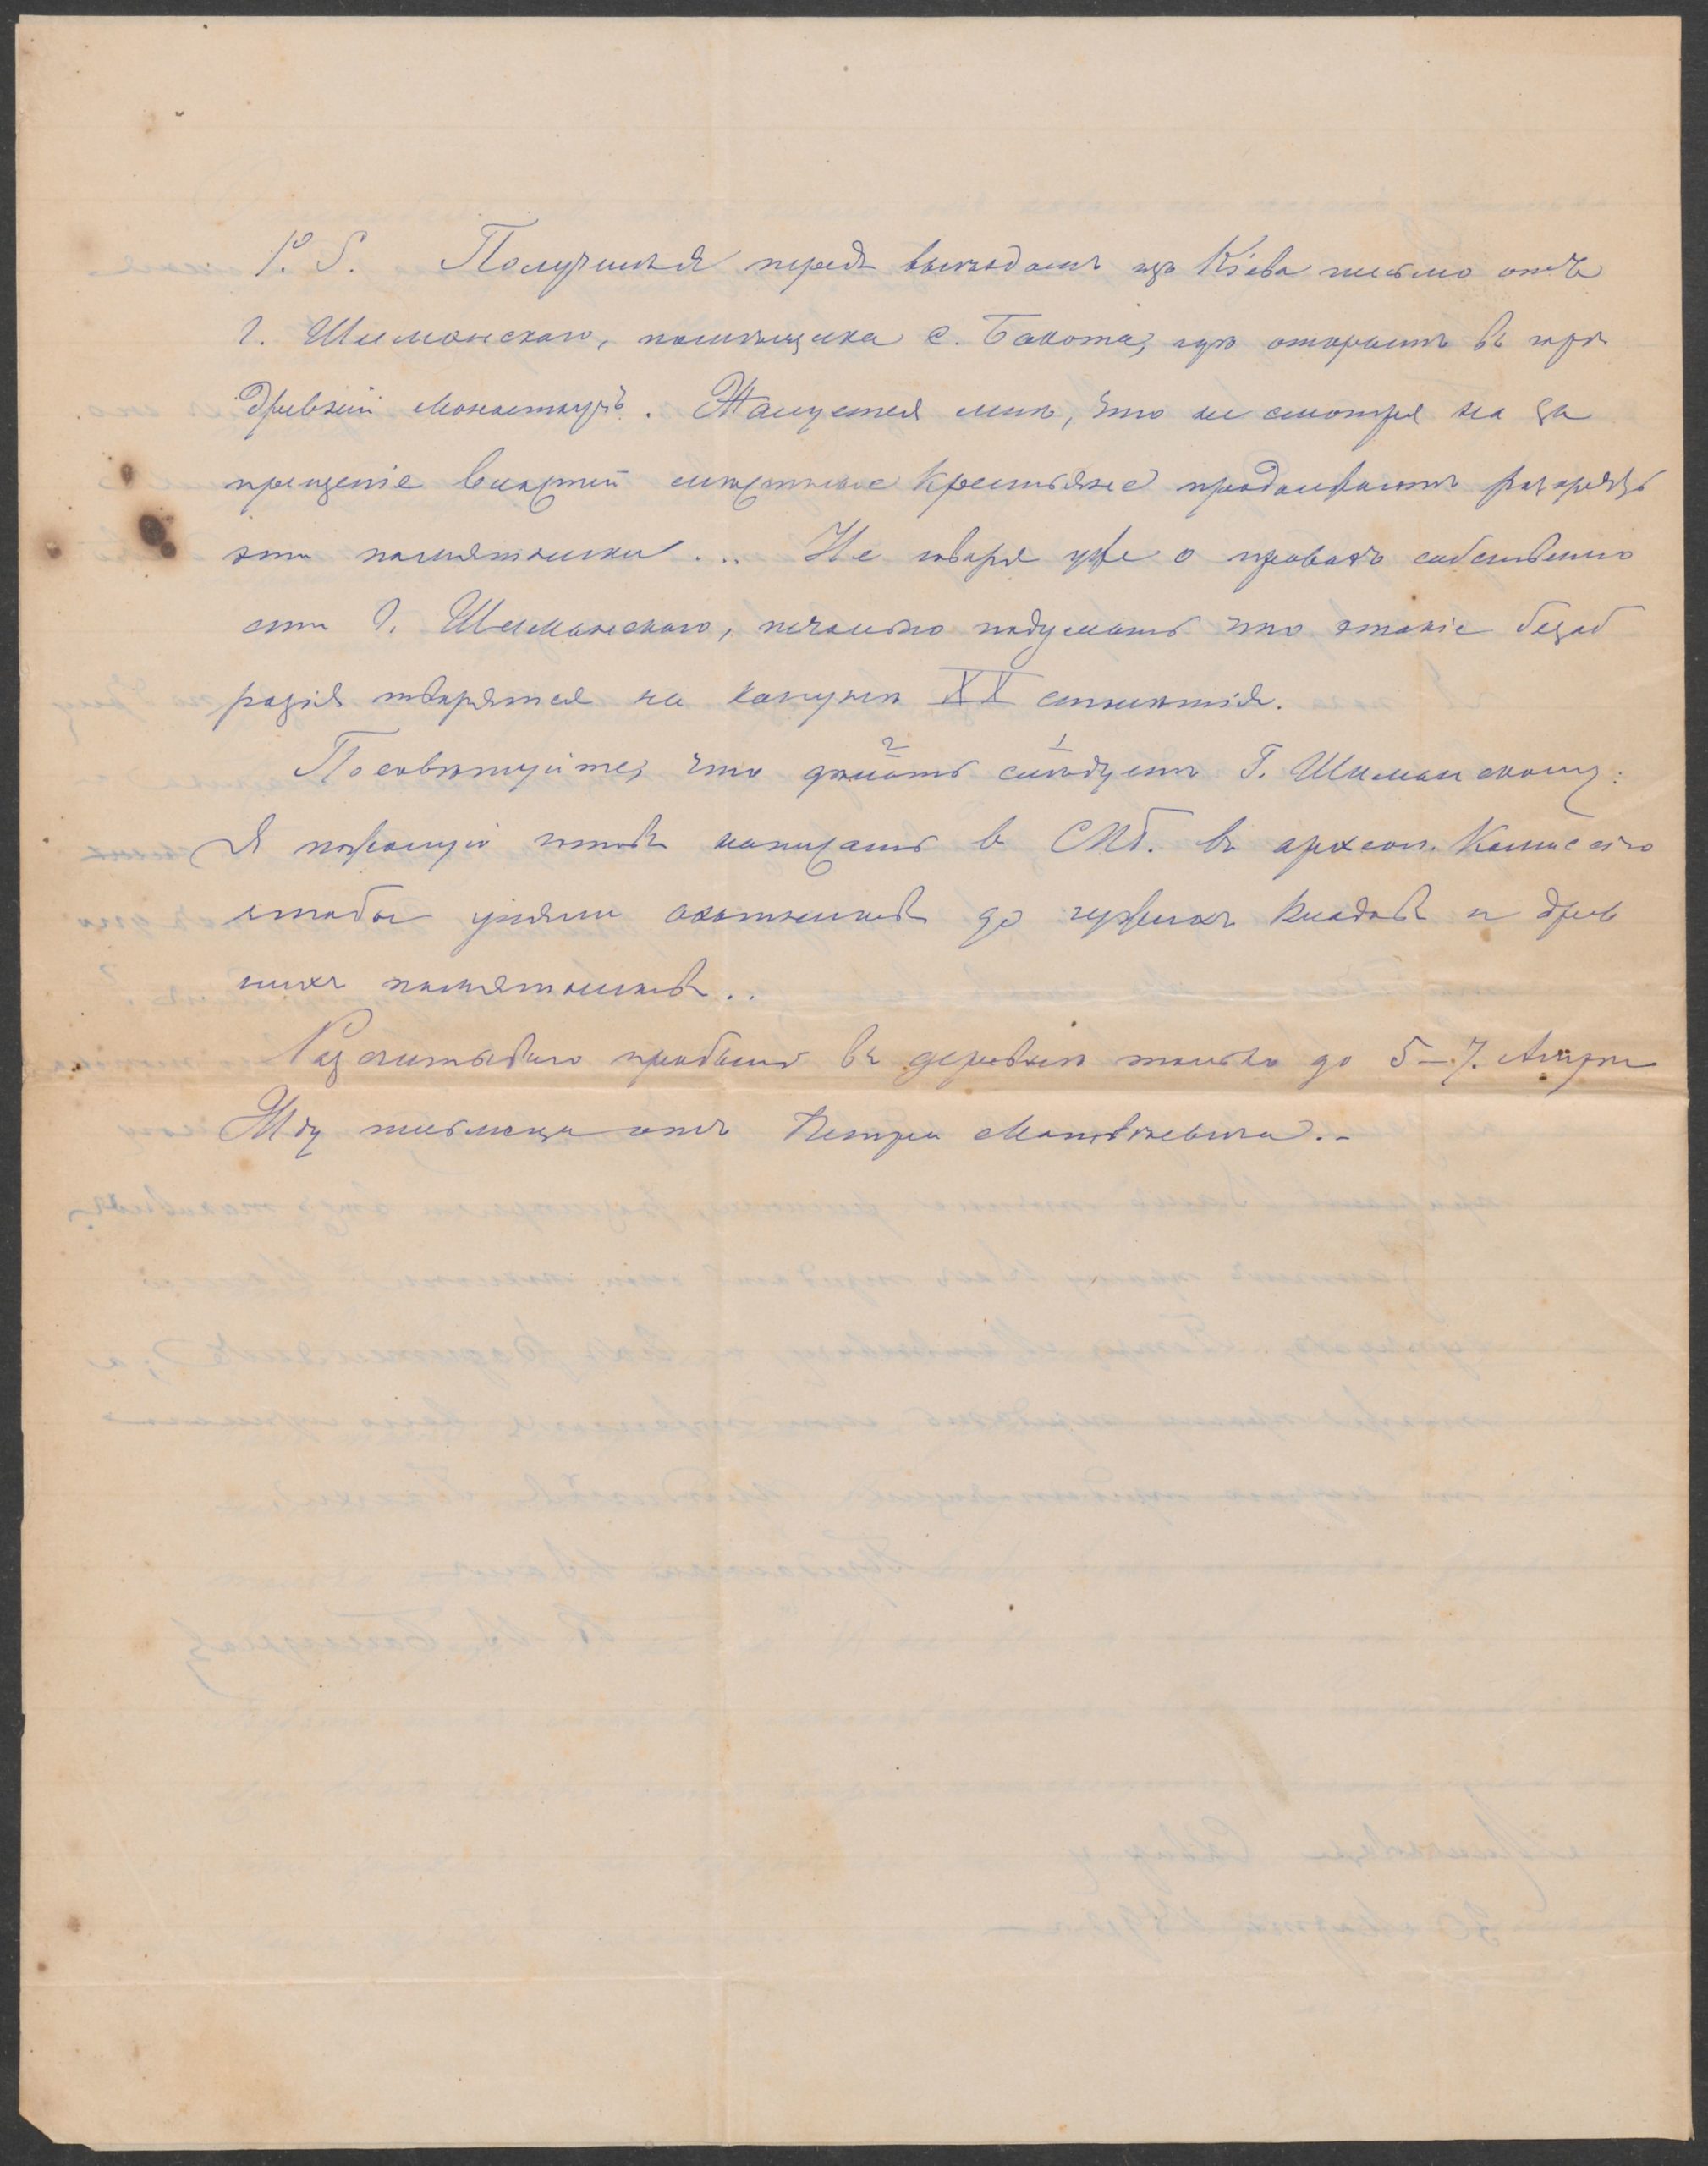 P. S. Получилъ я передъ выѣздомъ изъ Кіева письмо отъ
Г. Шиманскаго, помѣщика с. Бакота, гдѣ открытъ въ горѣ
древній монастырь. Жалуется мнѣ, что не смотря на за
прещеніе властей мѣстные крестьяне продолжаютъ разорять
эти памятники ... Не говоря уже о правахъ собственно
сти Г. Шиманскаго, печально подумать что этакіе безоб
разія творятся на канунѣ XX столѣтія.
Посовѣтуйте, что дѣлать 2 слѣдуетъ 1 Г. Шиманскому.
Я пожалуй готовъ написать въ СПб. въ археол. Комиссію
чтобы уняли охотниковъ до чужихъ кладовъ и древ
нихъ памятниковъ..
Разсчитываю пробыть въ деревнѣ только до 5–7. Апрѣля
Жду письмеца отъ Петра Матвѣевича.–